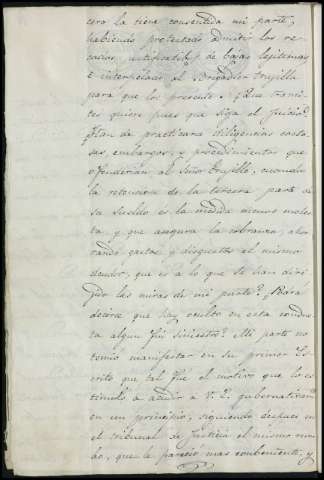 cero la tiene consentida mi parte,
habiendo protestado admitir los re-
cados justificatibos de bajas lejitimas
è interpelado al Brigadier Trujillo
para que los presente. ¿Que trami-
tes quiere pues que siga el juicio?
¿Han de practicarse diligencias costo-
sas, embargos, y procedimientos que
ofenderian al Señor Trujillo, cuando
la retencion de la tercera parte de
su sueldo es la medida menos moles-
ta y que asegura la cobranza, ahor-
rando gastos y disgustos al mismo
deudor, que es à lo que se han diri-
gido las miras de mi parte? ¿Podrá
decirse que hay oculto en esta conduc-
ta algun fin siniestro? Mi parte no
temió manifestar en su primer Es-
crito que tal fué el motivo que lo es-
timuló à acudir à V. E. gubernativam.te
en un principio, siguiendo despues en
el tribunal de Justicia el mismo rum-
bo, que le pareció mas conbeniente, y